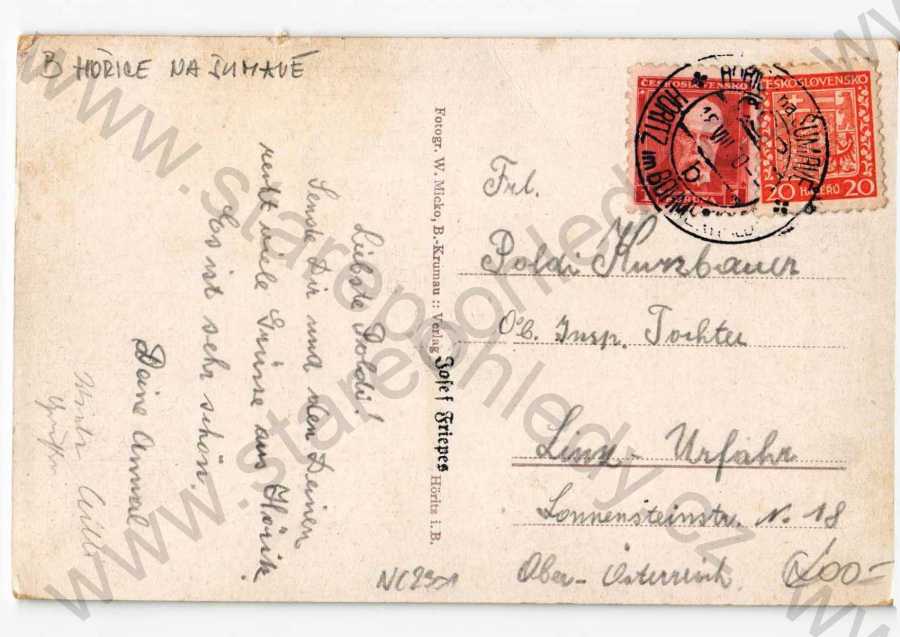 B HOŘICE NA ŠUMAVĚ
Liebste Poldi!
Sende Dir und den Deinen
recht viele Grüsse aus Höritz.
Es ist sehr schön.
Deine
Fotogr. W. Micko, B.-Krumau :: Verlag Josef Friepes Höritz i. B.
ČESKOSLOVENSKO
ČESKOSLOVENSKO
20 HALÉŘŮ 20
HOŘICE na ŠUMAVĚ
HÖRITZ im BÖHMERWALD
Frl.
Poldi Kurzbauer
Ob. Insp. Tochter
Linz - Urfahr
Sonnensteinstr. N. 18
Ober-Österreich.
NC2951
200-
www.starepohledy.cz